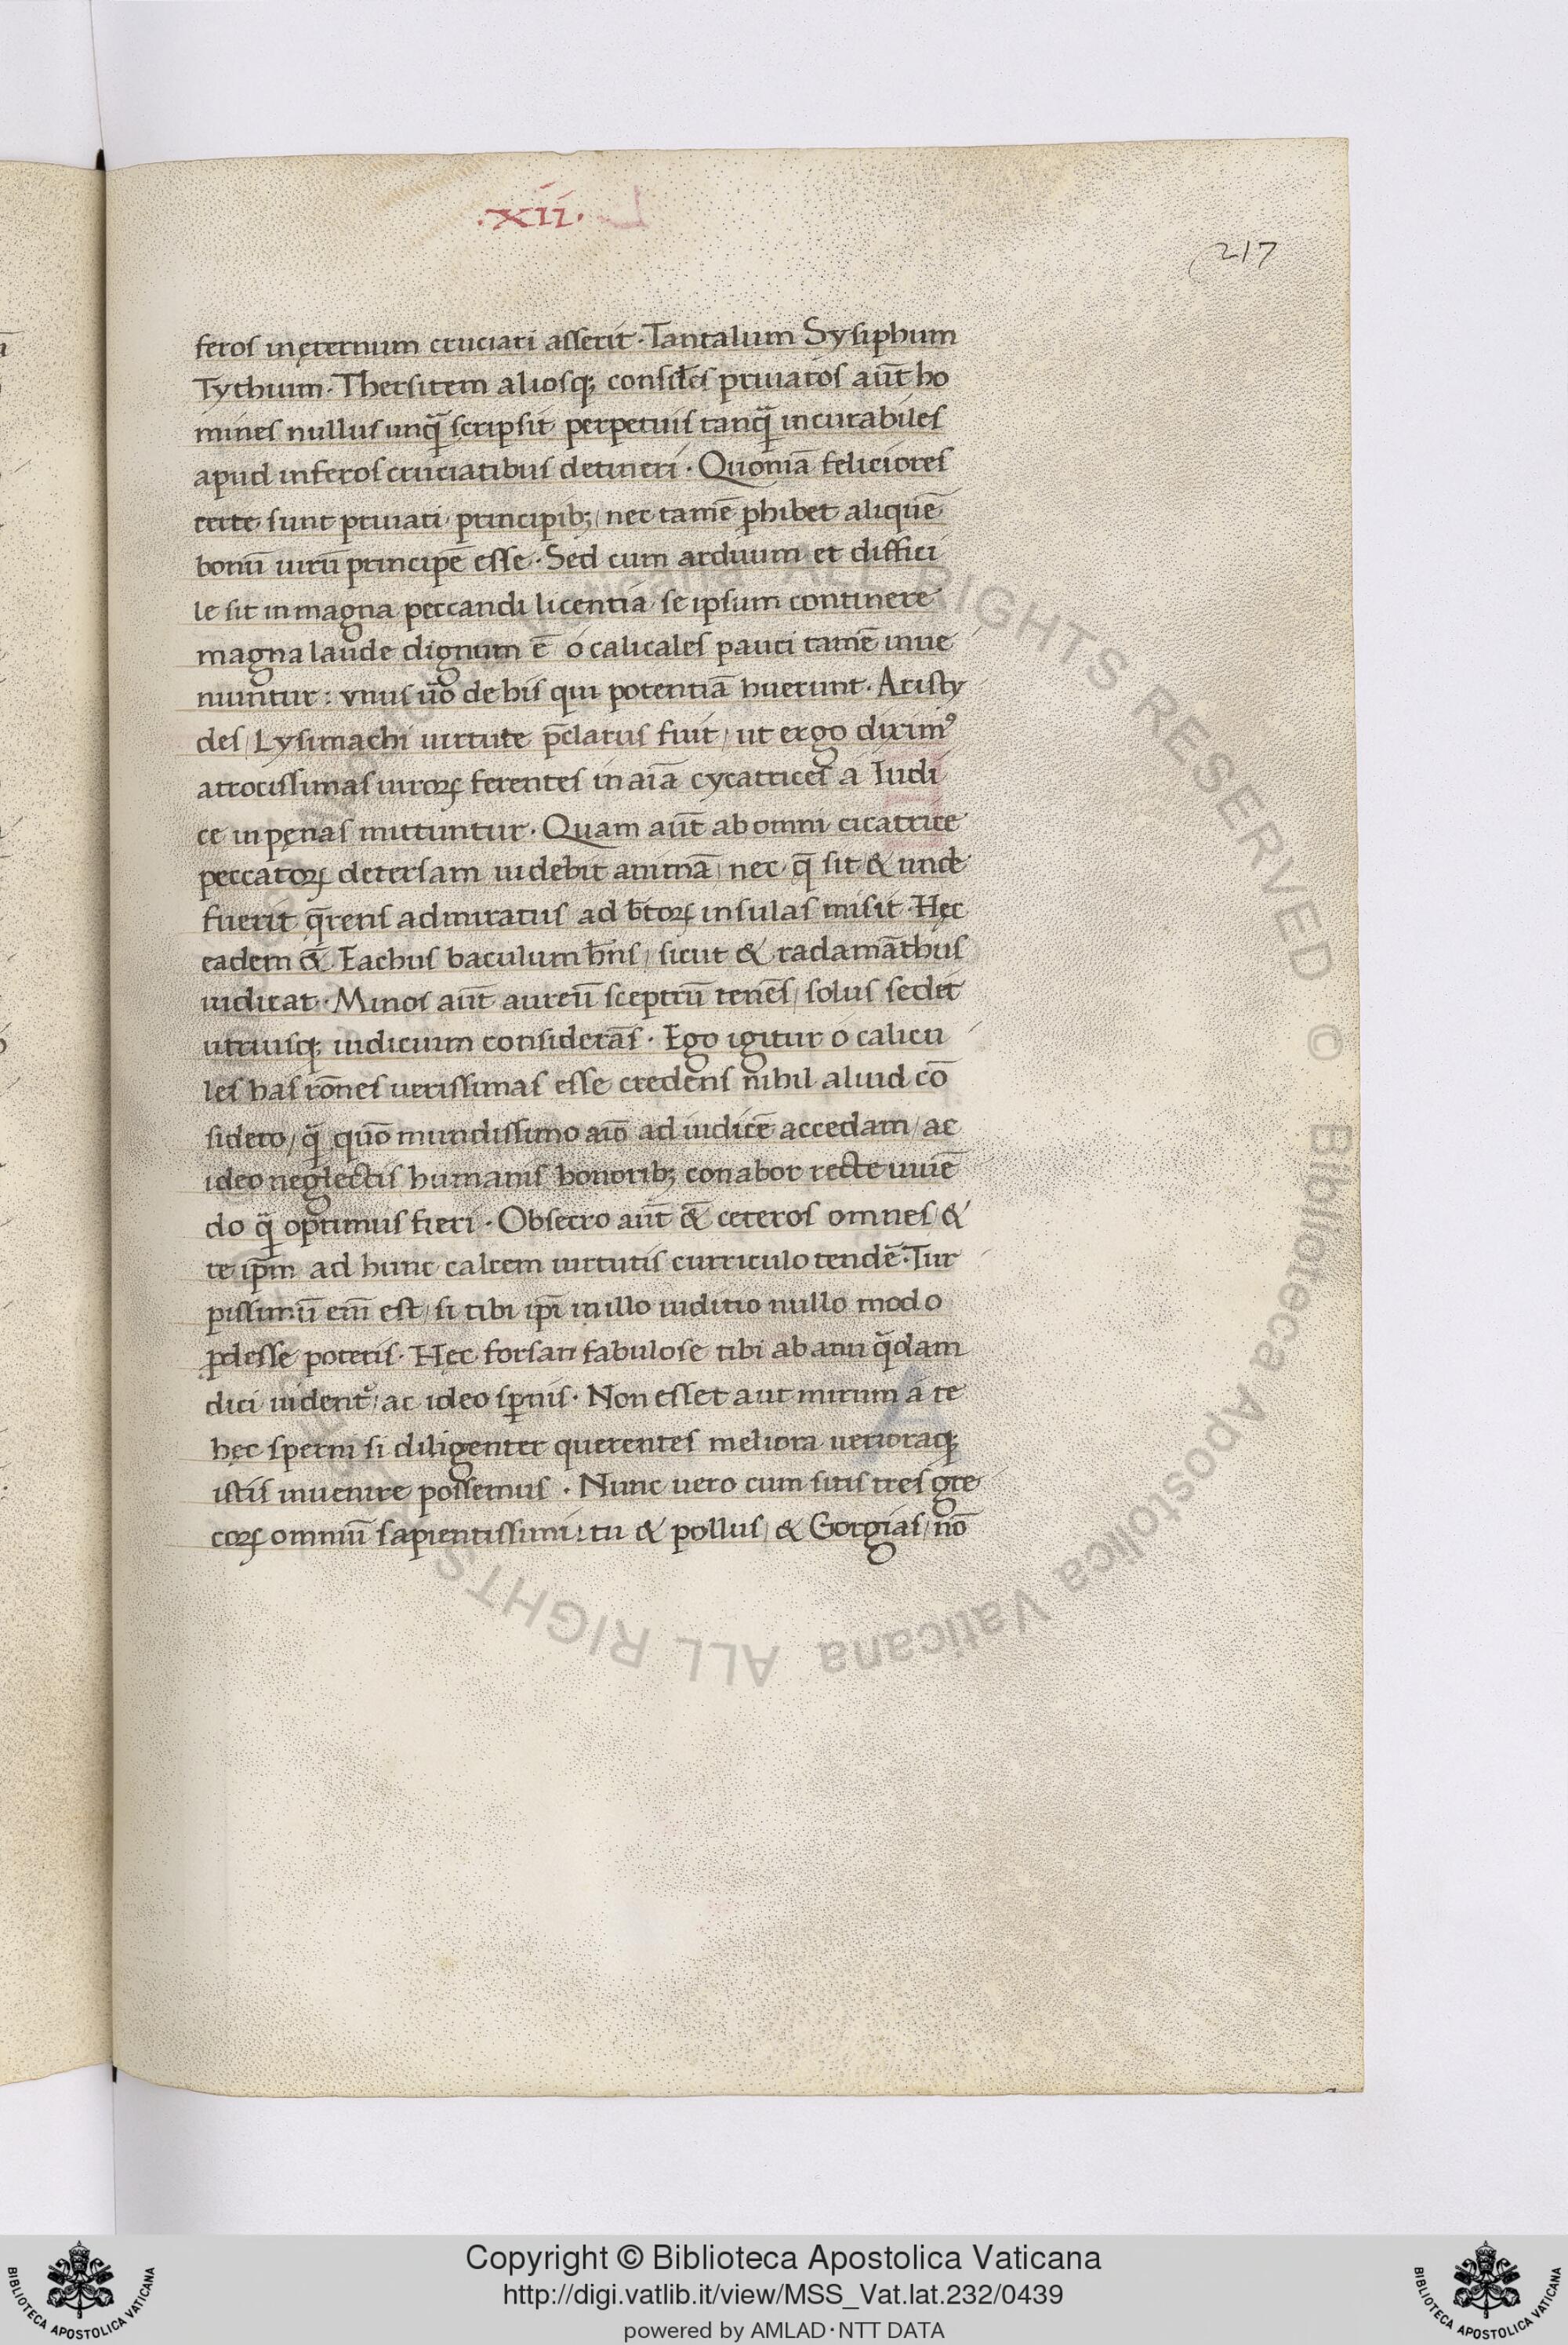 ·xii·
217
feros in ęternum cruciari asserit · Tantalum Sysiphum
Tychium · Thersitem aliosq; consil̃es priuatos aūt ho
mines nullus unq̃ scripsit perpetuis tanq̃ incurabiles
apud inferos cruciatibus detineri · Quoniā feliciores
certe sunt priuati principib; / nec tamē ꝓhibet aliquē
bonū uirū principē esse · Sed cum arduum et diffici
le sit in magna peccandi licentia se ipsum continere
magna laude dignum ē o calicales pauci tamē inue
niuntur : vnus ūo de his qui potentiā huerunt · Aristy
des / Lysimachi uirtute p̄clarus fuit / ut ergo diximꝰ
atrocissimas uiroꝝ ferentes in aiā cycatrices a Iudi
ce in pęnas mittuntur · Quam aūt ab omni cicatrice
peccatoꝝ detersam uidebit animā / nec q̄ sit & unde
fuerit q̄rens admiratus ad b̄toꝝ insulas misit · Hęc
eadem &̄ Eachus baculum h̄ns / sicut & radamāthus
iudicat · Minos aūt aureū sceptrū tenēs / solus sedet
utriusq; iudicium considerās · Ego igitur o calicu
les has rōnes uerissimas esse credens nihil aliud cō
sidero / q̃ quō mundissimo aīo ad iudicē accedam / ac
ideo neglectis humanis honorib; conabor recte uiuē
do q̃ optimus fieri · Obsecro aūt &̄ ceteros omnes &
te ip̄m ad hunc calcem uirtutis curriculo tendē · Tur
pissimū eīm est / si tibi ip̄i in illo iuditio nullo modo
ꝓdesse poteris · Hęc forsan fabulose tibi ab anu q̃dam
dici uident᷑ / ac ideo sp̄nis · Non esset aut mirum a te
hęc sperni si diligenter querentes meliora ueríoraq;
istis inuenire possemus · Nunc uero cum sitis tres gre
coꝝ omniū sapientissimi : tu & pollus / & Gorgias / nō
Copyright © Biblioteca Apostolica Vaticana
http://digi.vatlib.it/view/MSS_Vat.lat.232/0439
powered by AMLAD·NTT DATA
BIBLIOTECA APOSTOLICA VATICANA
BIBLIOTECA APOSTOLICA VATICANA
ALL RIGHTS RESERVED © Biblioteca Apostolica Vaticana ALL RIGHTS